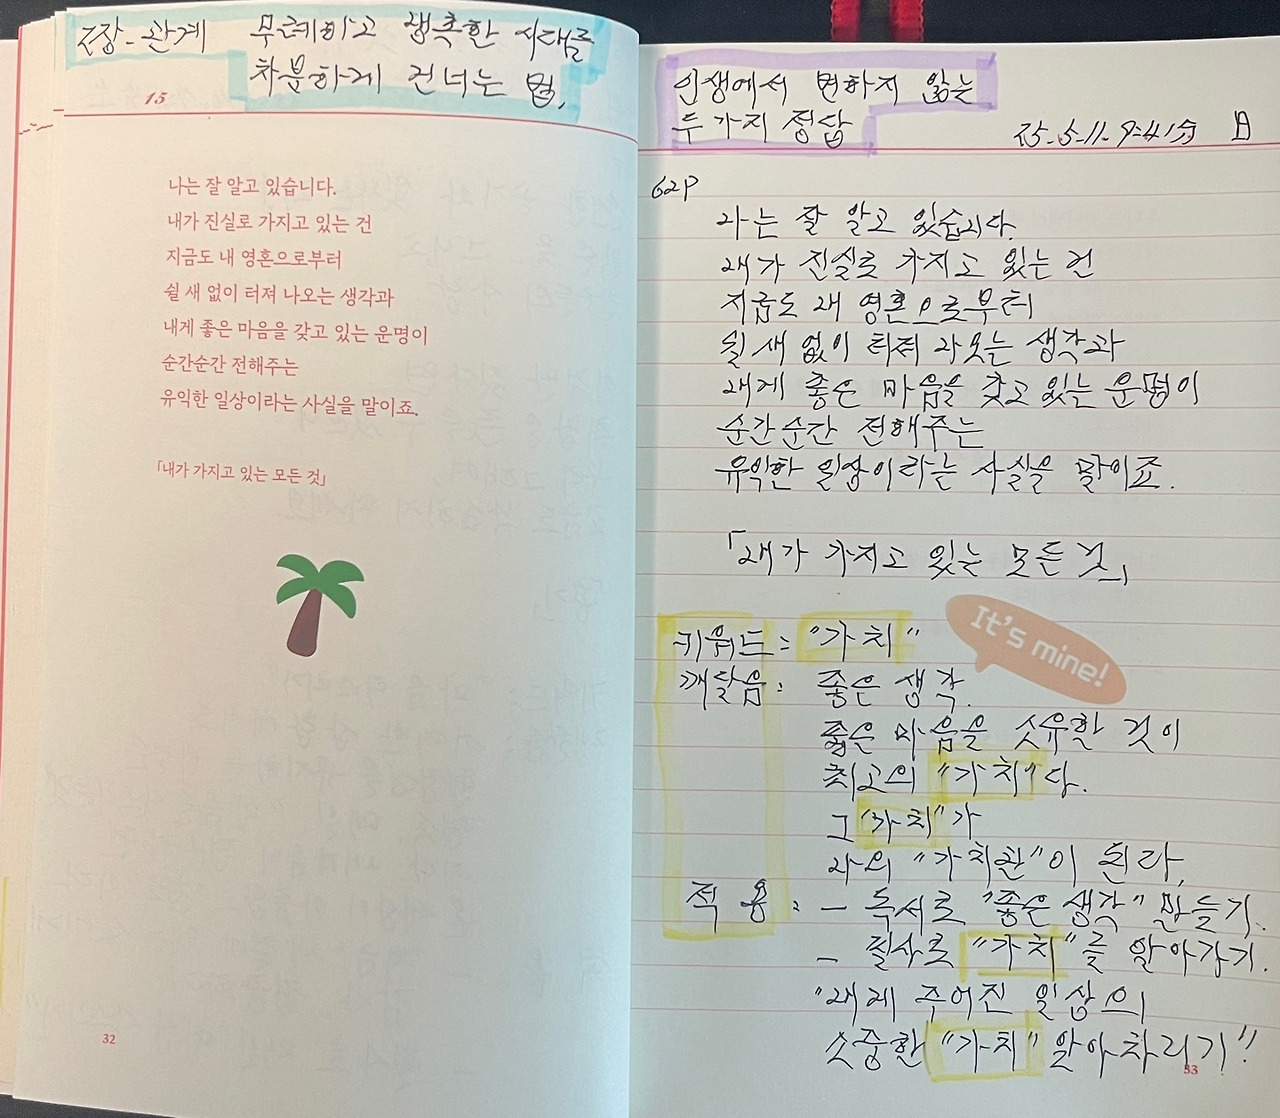 2장-관계 무례하고 생축한 시대를
차분하게 건너는 법,
15
나는 잘 알고 있습니다.
내가 진실로 가지고 있는 건
지금도 내 영혼으로부터
쉴 새 없이 터져 나오는 생각과
내게 좋은 마음을 갖고 있는 운명이
순간순간 전해주는
유익한 일상이라는 사실을 말이죠.
「내가 가지고 있는 모든 것」
32
인생에서 변하지 않는
두 가지 정답
25-5-11-9:41분 日
62P
나는 잘 알고 있습니다.
내가 진실로 가지고 있는 건
지금도 내 영혼으로부터
쉴 새 없이 터져 나오는 생각과
내게 좋은 마음을 갖고 있는 운명이
순간순간 전해주는
유익한 일상이라는 사실을 말이죠.
「내가 가지고 있는 모든 것」
It's mine!
키워드: "가치"
깨달음: 좋은 생각.
좋은 마음을 소유한 것이
최고의 "가치"다.
그 "가치"가
나의 "가치관"이 된다,
적용: - 독서로 "좋은 생각" 만들기.
- 필사로 "가치"를 알아가기.
"내게 주어진 일상의
소중한 "가치" 알아차리기"
33